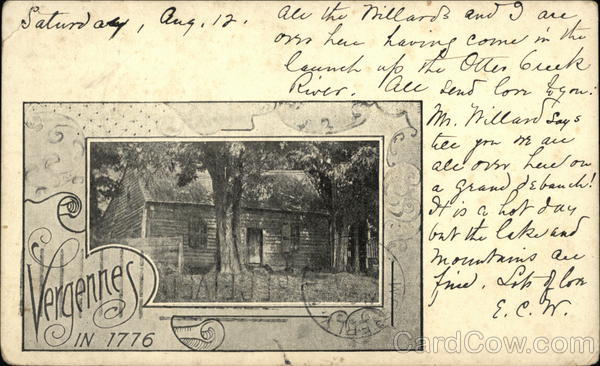 Saturday, Aug. 12.
All the Willards and I are
over here having come in the
launch up the Otter Creek
River. All send love to you.
Mr. Willard says
tell you we are
all over here on
a grand debauch!
It is a hot day
but the lake and
mountains are
fine. Lots of love
E. C. W.
Vergennes
IN 1776
CardCow.com